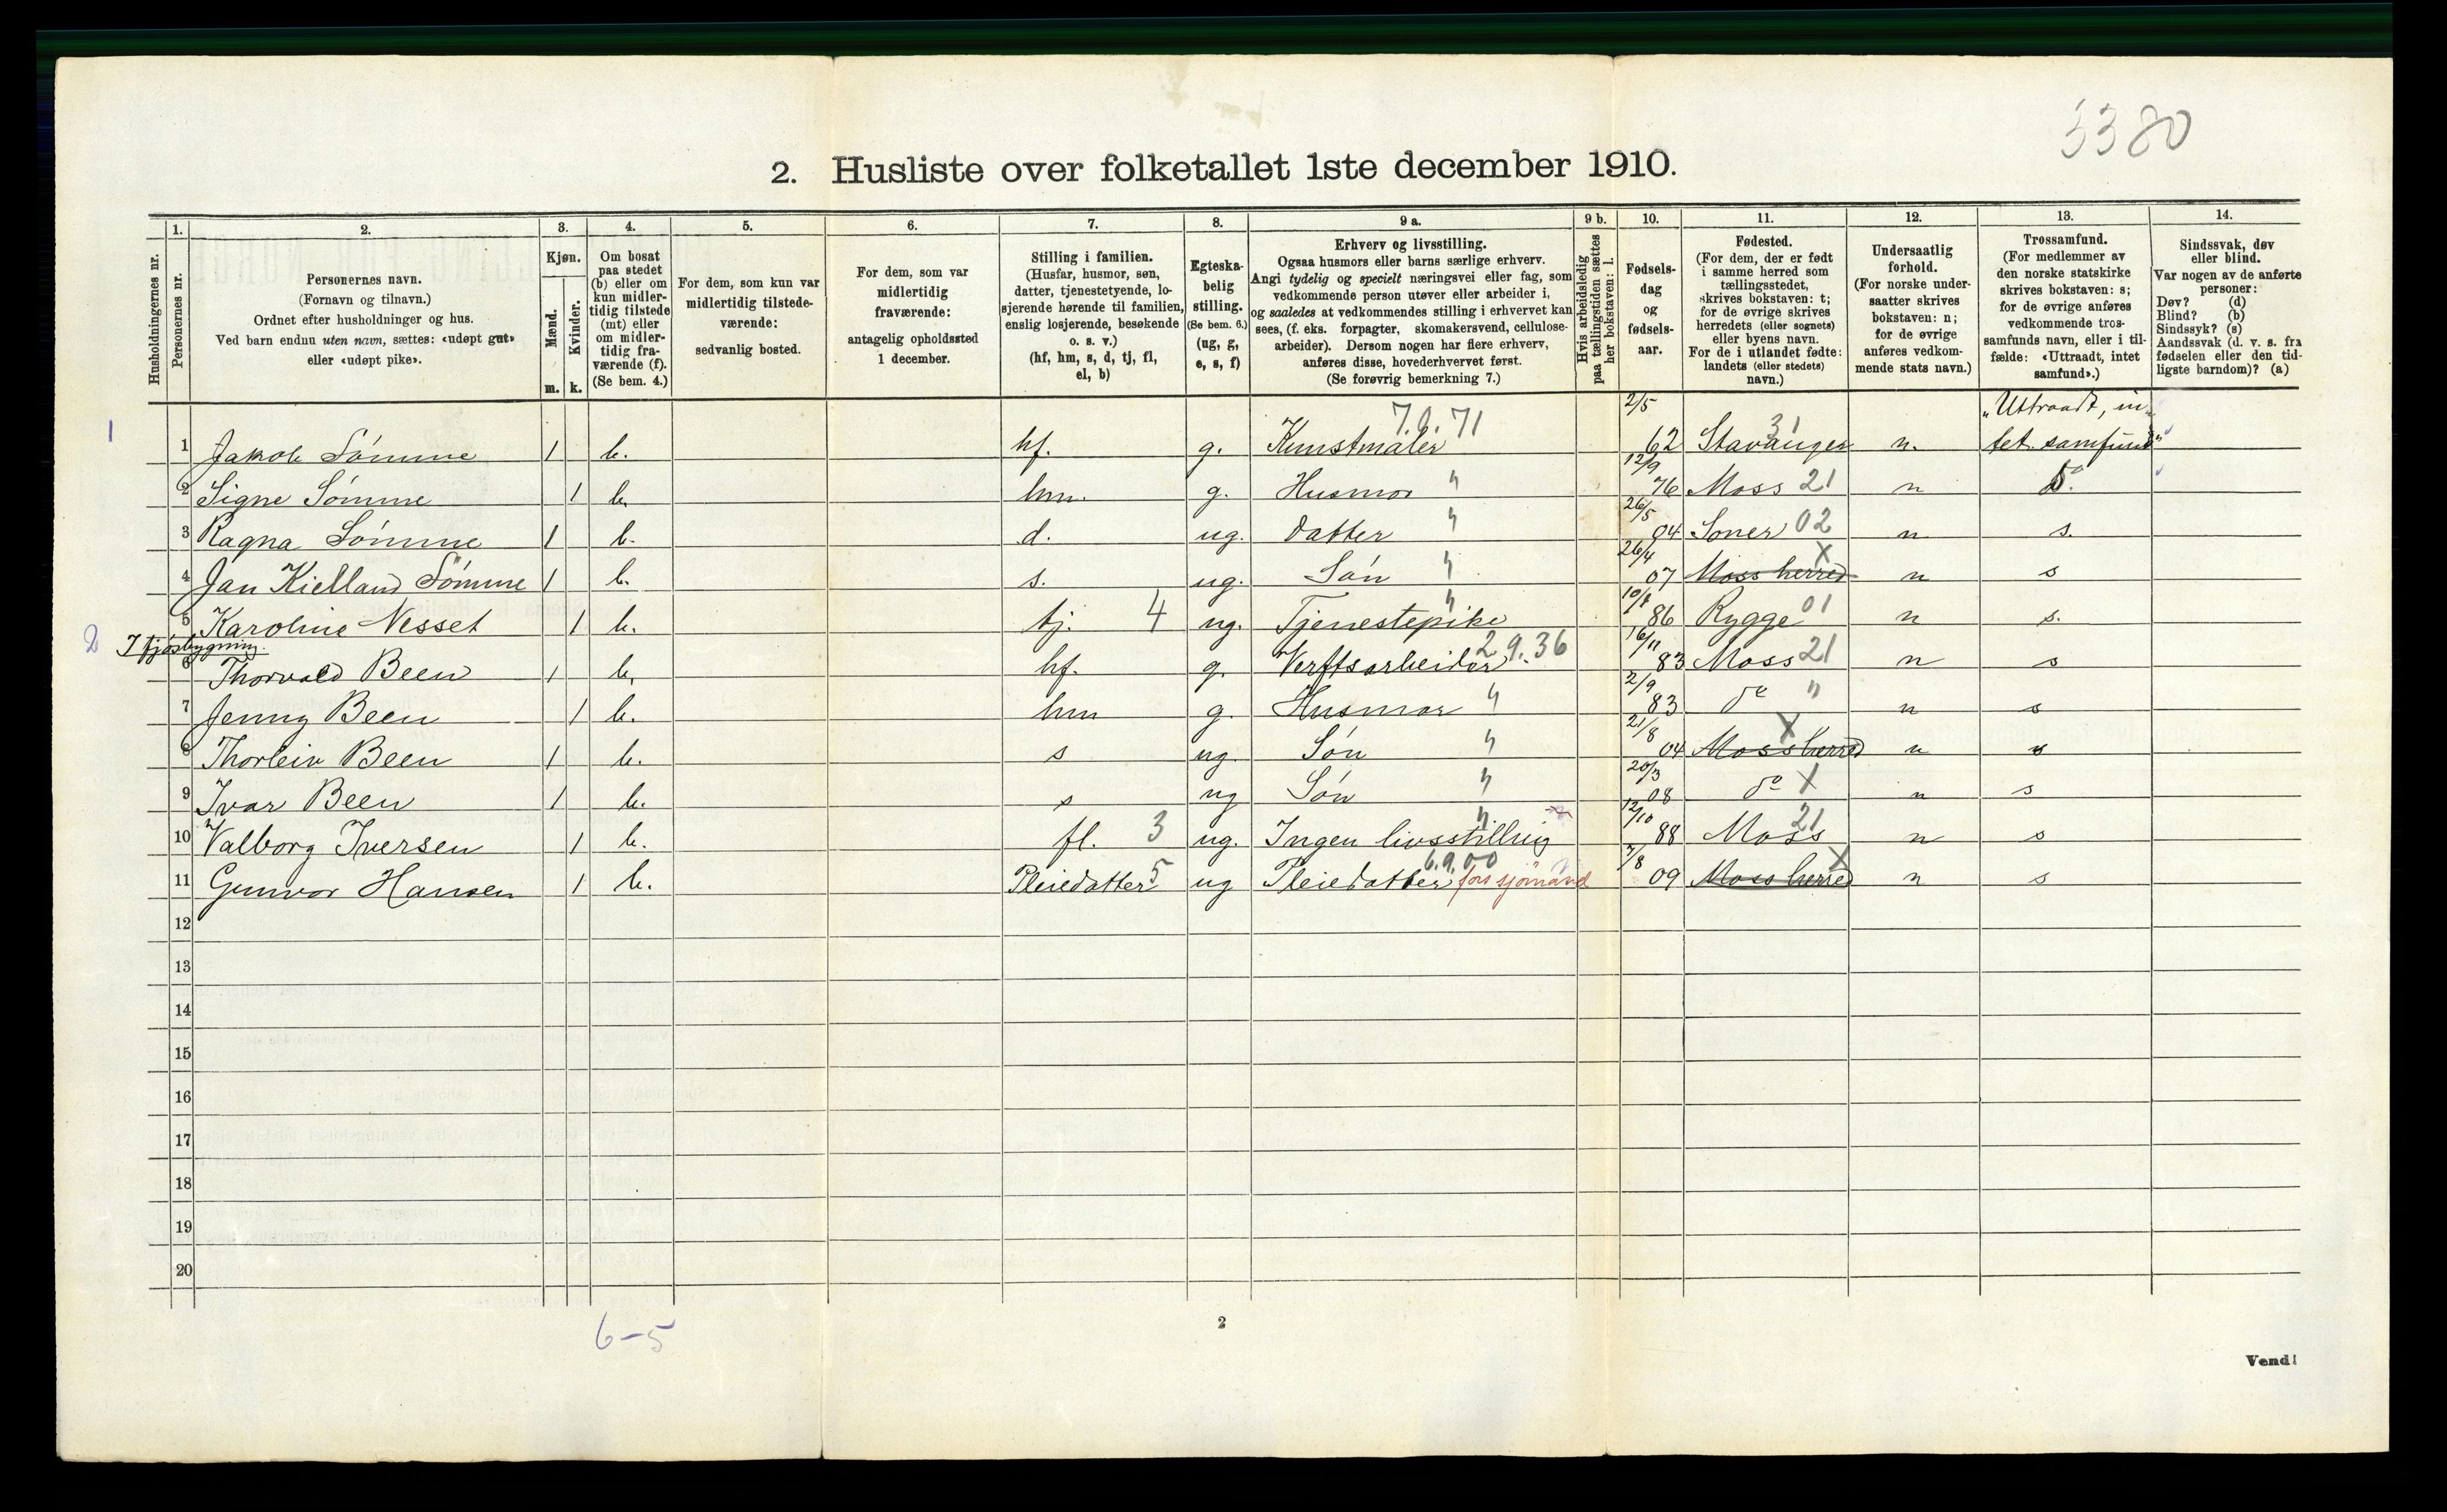 3380
2. Husliste over folketallet 1ste december 1910.
Husholdningernes nr.
1. Personernes nr.
2. Personernes navn.
(Fornavn og tilnavn.)
Ordnet efter husholdninger og hus.
Ved barn endnu uten navn, sættes: «udøpt gut»
eller «udøpt pike».
3. Kjøn.
Mænd. m.
Kvinder. k.
4. Om bosat
paa stedet
(b) eller om
kun midler-
tidig tilstede
(mt) eller
om midler-
tidig fra-
værende (f).
(Se bem. 4.)
5. For dem, som kun var
midlertidig tilstede-
værende:
sedvanlig bosted.
6. For dem, som var
midlertidig
fraværende:
antagelig opholdssted
1 december.
7. Stilling i familien.
(Husfar, husmor, søn,
datter, tjenestetyende, lo-
sjerende hørende til familien,
enslig losjerende, besøkende
o. s. v.)
(hf, hm, s, d, tj, fl,
el, b)
8. Egteska-
belig
stilling.
(Se bem. 6.)
(ug, g,
e, s, f)
9 a. Erhverv og livsstilling.
Ogsaa husmors eller barns særlige erhverv.
Angi tydelig og specielt næringsvei eller fag, som
vedkommende person utøver eller arbeider i,
og saaledes at vedkommendes stilling i erhvervet kan
sees, (f. eks. forpagter, skomakersvend, cellulose-
arbeider). Dersom nogen har flere erhverv,
anføres disse, hovederhvervet først.
(Se forøvrig bemerkning 7.)
9 b. Hvis arbeidsledig
paa tællingstiden sættes
her bokstaven: l.
10. Fødsels-
dag
og
fødsels-
aar.
11. Fødested.
(For dem, der er født
i samme herred som
tællingsstedet,
skrives bokstaven: t;
for de øvrige skrives
herredets (eller sognets)
eller byens navn.
For de i utlandet fødte:
landets (eller stedets)
navn.)
12. Undersaatlig
forhold.
(For norske under-
saatter skrives
bokstaven: n;
for de øvrige
anføres vedkom-
mende stats navn.)
13. Trossamfund.
(For medlemmer av
den norske statskirke
skrives bokstaven: s;
for de øvrige anføres
vedkommende tros-
samfunds navn, eller i til-
fælde: «Uttraadt, intet
samfund».)
14. Sindssvak, døv
eller blind.
Var nogen av de anførte
personer:
Døv? (d)
Blind? (b)
Sindssyk? (s)
Aandssvak (d. v. s. fra
fødselen eller den tid-
ligste barndom)? (a)
1 1 Jakob Sömme 1 b. hf. g. Kunstmaler 7.0.71 2/5 62 Stavanger 31 n. "Uttraadt, in-
tet samfund"
2 Signe Sömme 1 b. hm. g. Husmor " 12/9 76 Moss 21 n do
3 Ragna Sömme 1 b. d. ug. datter " 26/5 04 Soner 02 n s.
4 Jan Kielland Sömme 1 b. s. ug. Sön " 26/4 07 Moss herred X n s
5 Karoline Nesset 1 b. tj. 4 ug. Tjenestepike " 86 Rygge 01 n s.
2 I fjösbygning.
6 Thorvald Been 1 b. hf. g. Verftsarbeider 2.9.36 16/11 83 Moss 21 n s
7 Jenny Been 1 b. hm g. Husmor " 2/9 83 do " n s
8 Thorleiv Been 1 b. s ug. Sön " 21/8 04 Moss herred X n s
9 Ivar Been 1 b. s ug Sön " 20/3 08 do X n s
10 Valborg Iversen 1 b. fl. 3 ug. Ingen livsstilling " 12/10 88 Moss 21 n s
11 Gunvor Hansen 1 b. Pleiedatter 5 ug Pleiedatter 6.9.00 fors sjömand 7/8 09 Moss herred X n s
12
13
14
15
16
17
18
19
20
6-5
2
Vend!